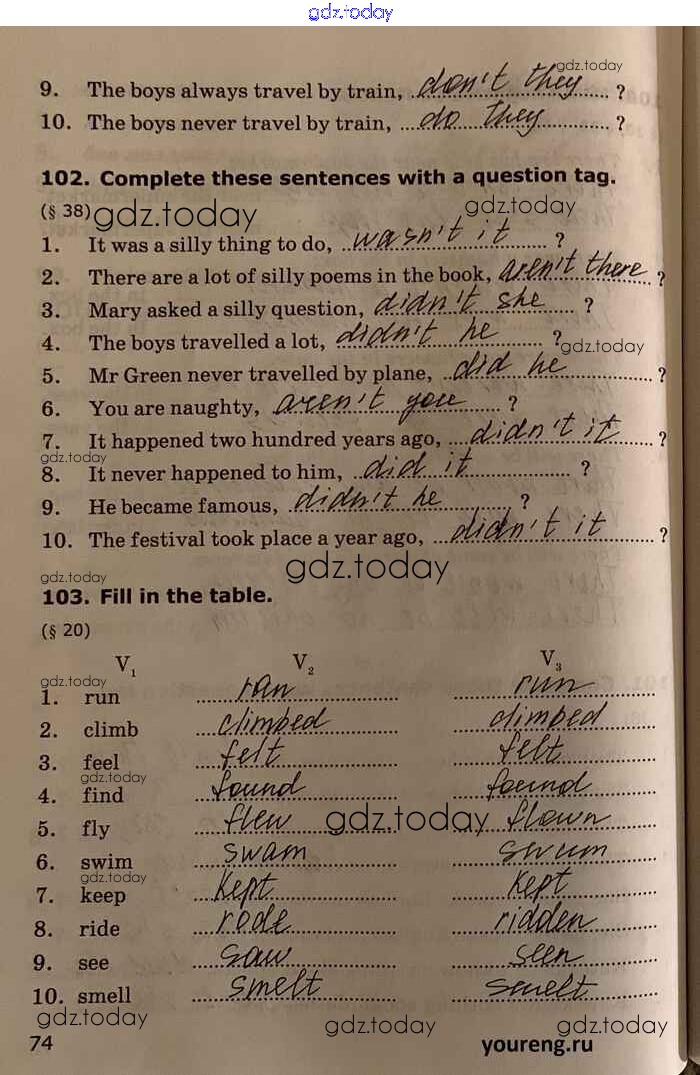 gdz.today
gdz.today
9. The boys always travel by train, don't they ?
10. The boys never travel by train, do they ?
102. Complete these sentences with a question tag.
(§ 38) gdz.today gdz.today
1. It was a silly thing to do, wasn't it ?
2. There are a lot of silly poems in the book, aren't there ?
3. Mary asked a silly question, didn't she ?
4. The boys travelled a lot, didn't he ?
gdz.today
5. Mr Green never travelled by plane, did he ?
6. You are naughty, aren't you ?
7. It happened two hundred years ago, didn't it ?
gdz.today
8. It never happened to him, did it ?
9. He became famous, didn't he ?
10. The festival took place a year ago, didn't it ?
gdz.today gdz.today
103. Fill in the table.
(§ 20)
V1 V2 V3
gdz.today
1. run ran run
2. climb climbed climbed
3. feel felt felt
gdz.today
4. find found found
5. fly flew gdz.today flown
6. swim swam swum
gdz.today
7. keep kept kept
8. ride rode ridden
9. see saw seen
10. smell smelt smelt
gdz.today gdz.today gdz.today
74 youreng.ru